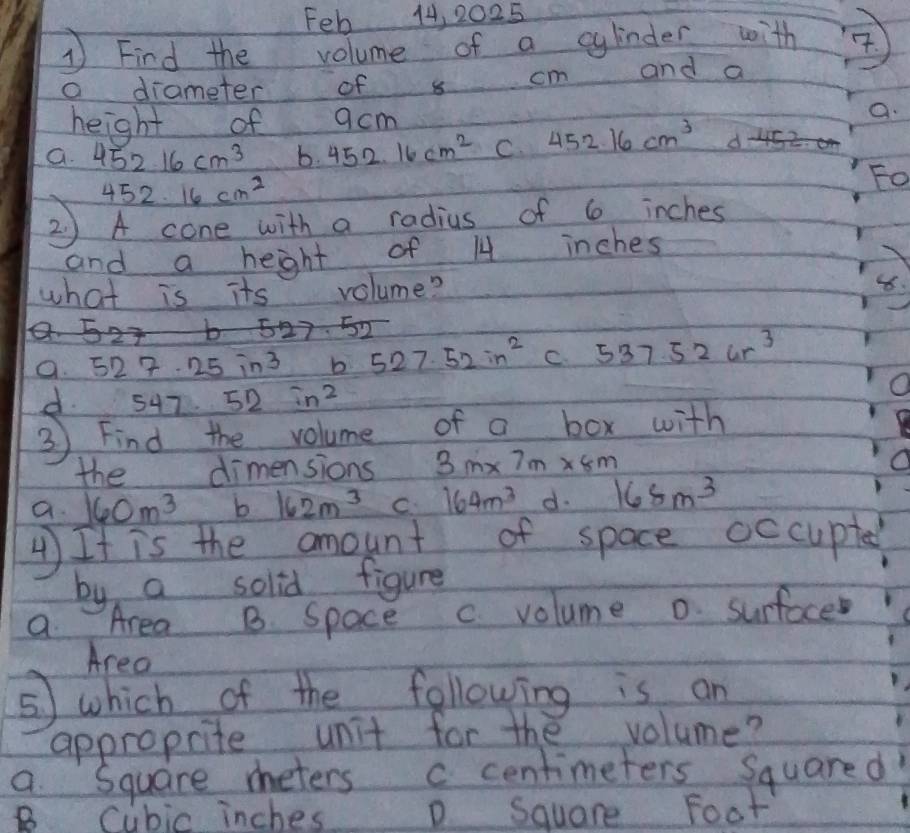 Feb 14, 2025
1) Find the volume of a cylinder with
a diameter of 8 cm and a
height of 9cm
a. 452.16 cm³ b. 452.16 cm² c. 452.16 cm³ d 452. cm
452.16 cm²
2.) A cone with a radius of 6 inches
and a height of 14 inches
what is its volume?
a. 527 b 527.52
a. 527.25 in³ b. 527.52 in² c. 537.52 in³
d. 547.52 in²
3) Find the volume of a box with
the dimensions 3m x 7m x 8m
a. 160m³ b 162m³ c. 164m³ d. 168m³
4) It is the amount of space occupied
by a solid figure
a. Area B. Space c. volume D. surface
Area
5.) which of the following is an
approprite unit for the volume?
a. Square meters c centimeters squared
B Cubic inches D Square Foot
7.)
a.
Fo
8.
a
B
a